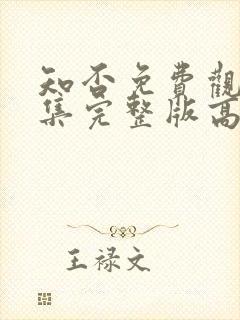 知否免費觀
集完整版高
王禄文